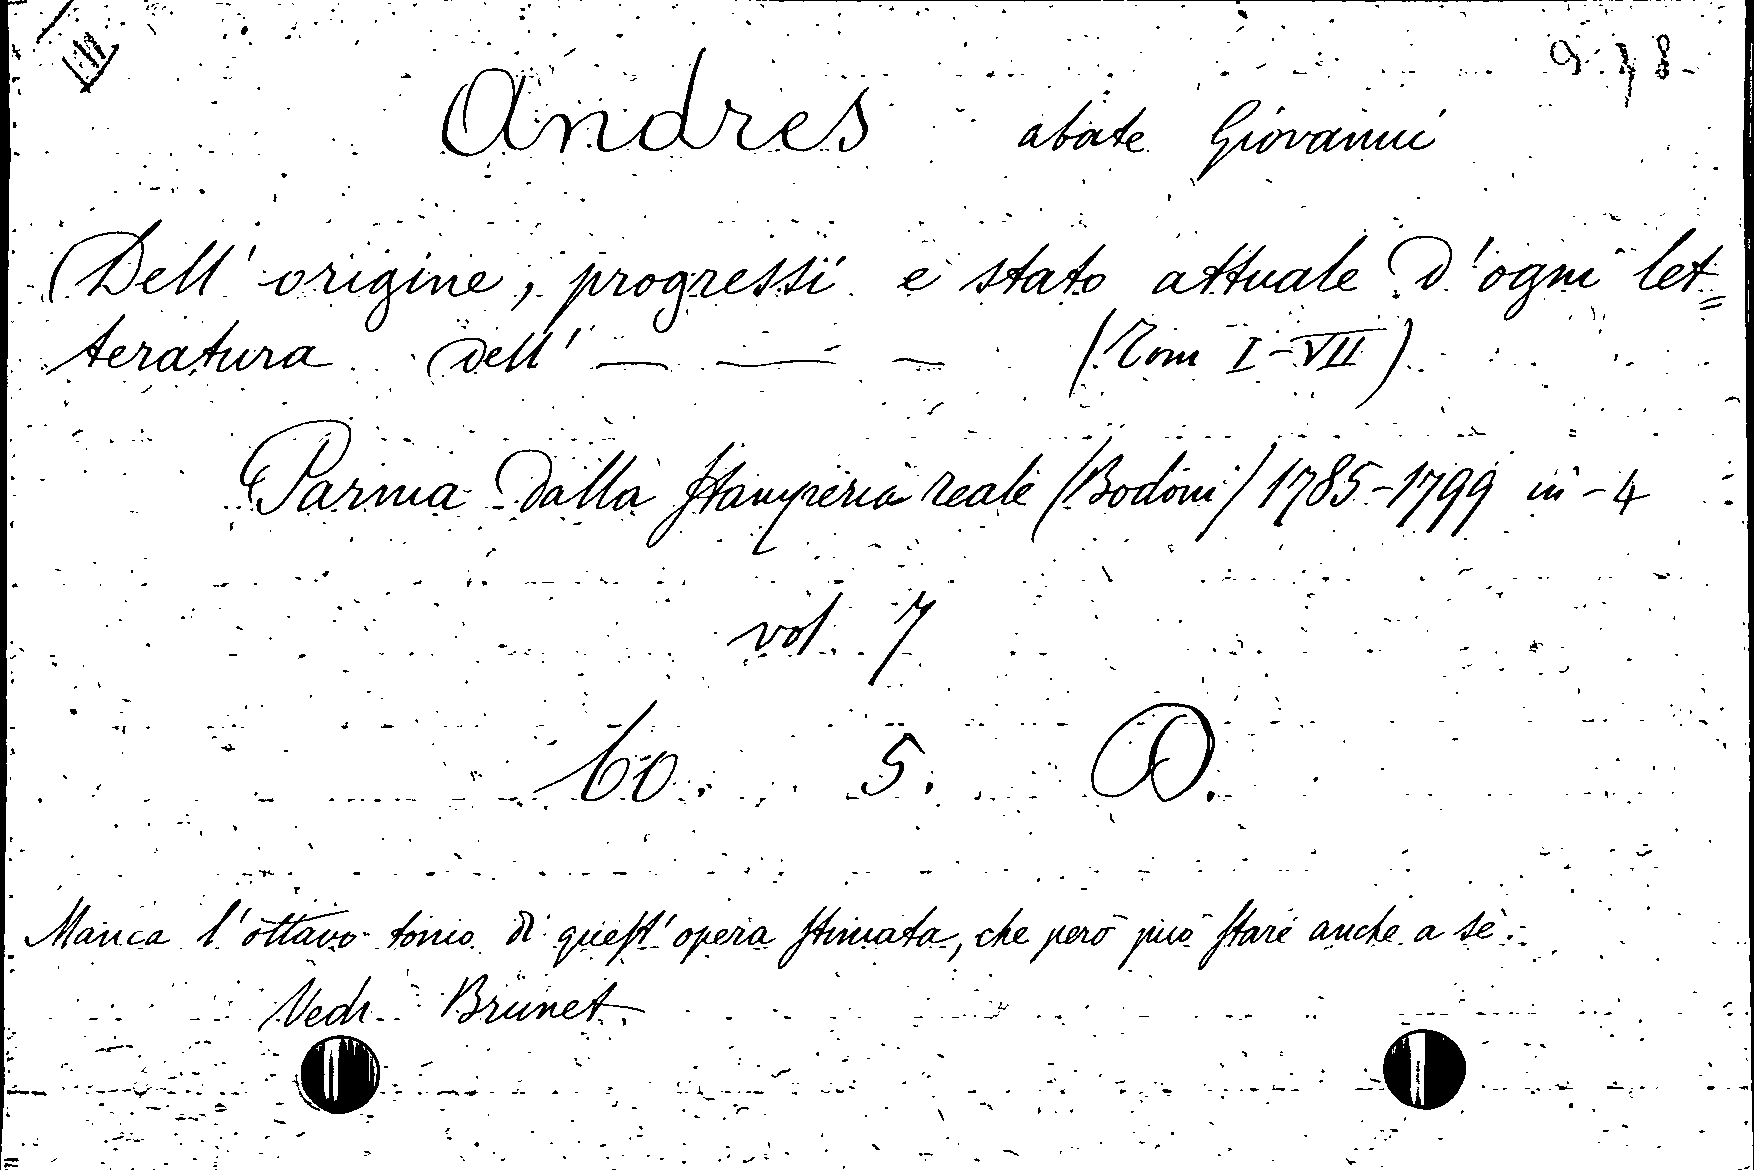 978
Andres abate Giovanni
Dell' origine, progressi e stato attuale d'ogni let=
teratura dell' — — — (Tom I-VII)
Parma dalla stamperia reale (Bodoni) 1785-1799 in-4
vol. 7
60. 5. D.
Manca l'ottavo tomo di quest'opera stimata, che però può stare anche a sè.
Vedi Brunet.